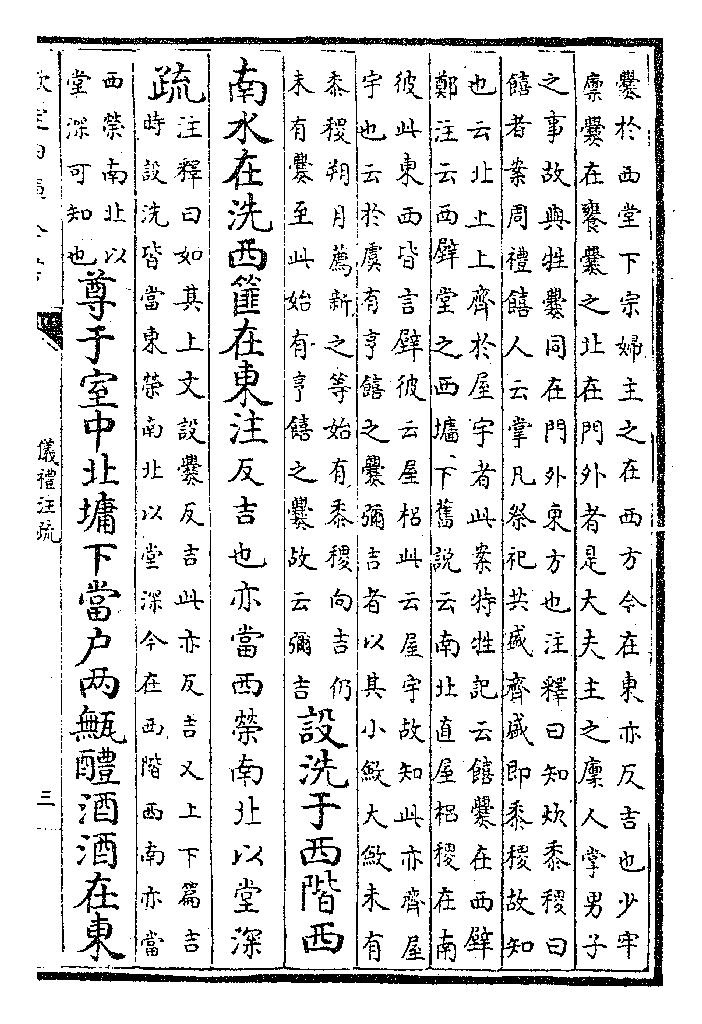 爨於西堂下宗婦主之在西方今在東亦反吉也少牢
廪爨在饔爨之北在門外者是大夫主之廪人掌男子
之事故與牲爨同在門外東方也注釋曰知炊黍稷曰
饎者案周禮饎人云掌凡祭祀共盛齊盛即黍稷故知
也云北上上齊於屋宇者此案特牲記云饎爨在西壁
鄭注云西壁堂之西墉下舊說云南北直屋梠稷在南
彼此東西皆言壁彼云屋梠此云屋宇故知此亦齊屋
宇也云於虞有亨饎之爨彌吉者以其小斂大斂未有
黍稷朔月薦新之等始有黍稷向吉仍
未有爨至此始有亨饎之爨故云彌吉
設洗于西階西
南水在洗西篚在東注反吉也亦當西榮南北以堂深
疏
注釋曰如其上文設爨反吉此亦反吉又上下篇吉
時設洗皆當東榮南北以堂深今在西階西南亦當
西榮南北以
堂深可知也
尊于室中北墉下當户两甒醴酒酒在東
儀禮注疏
三